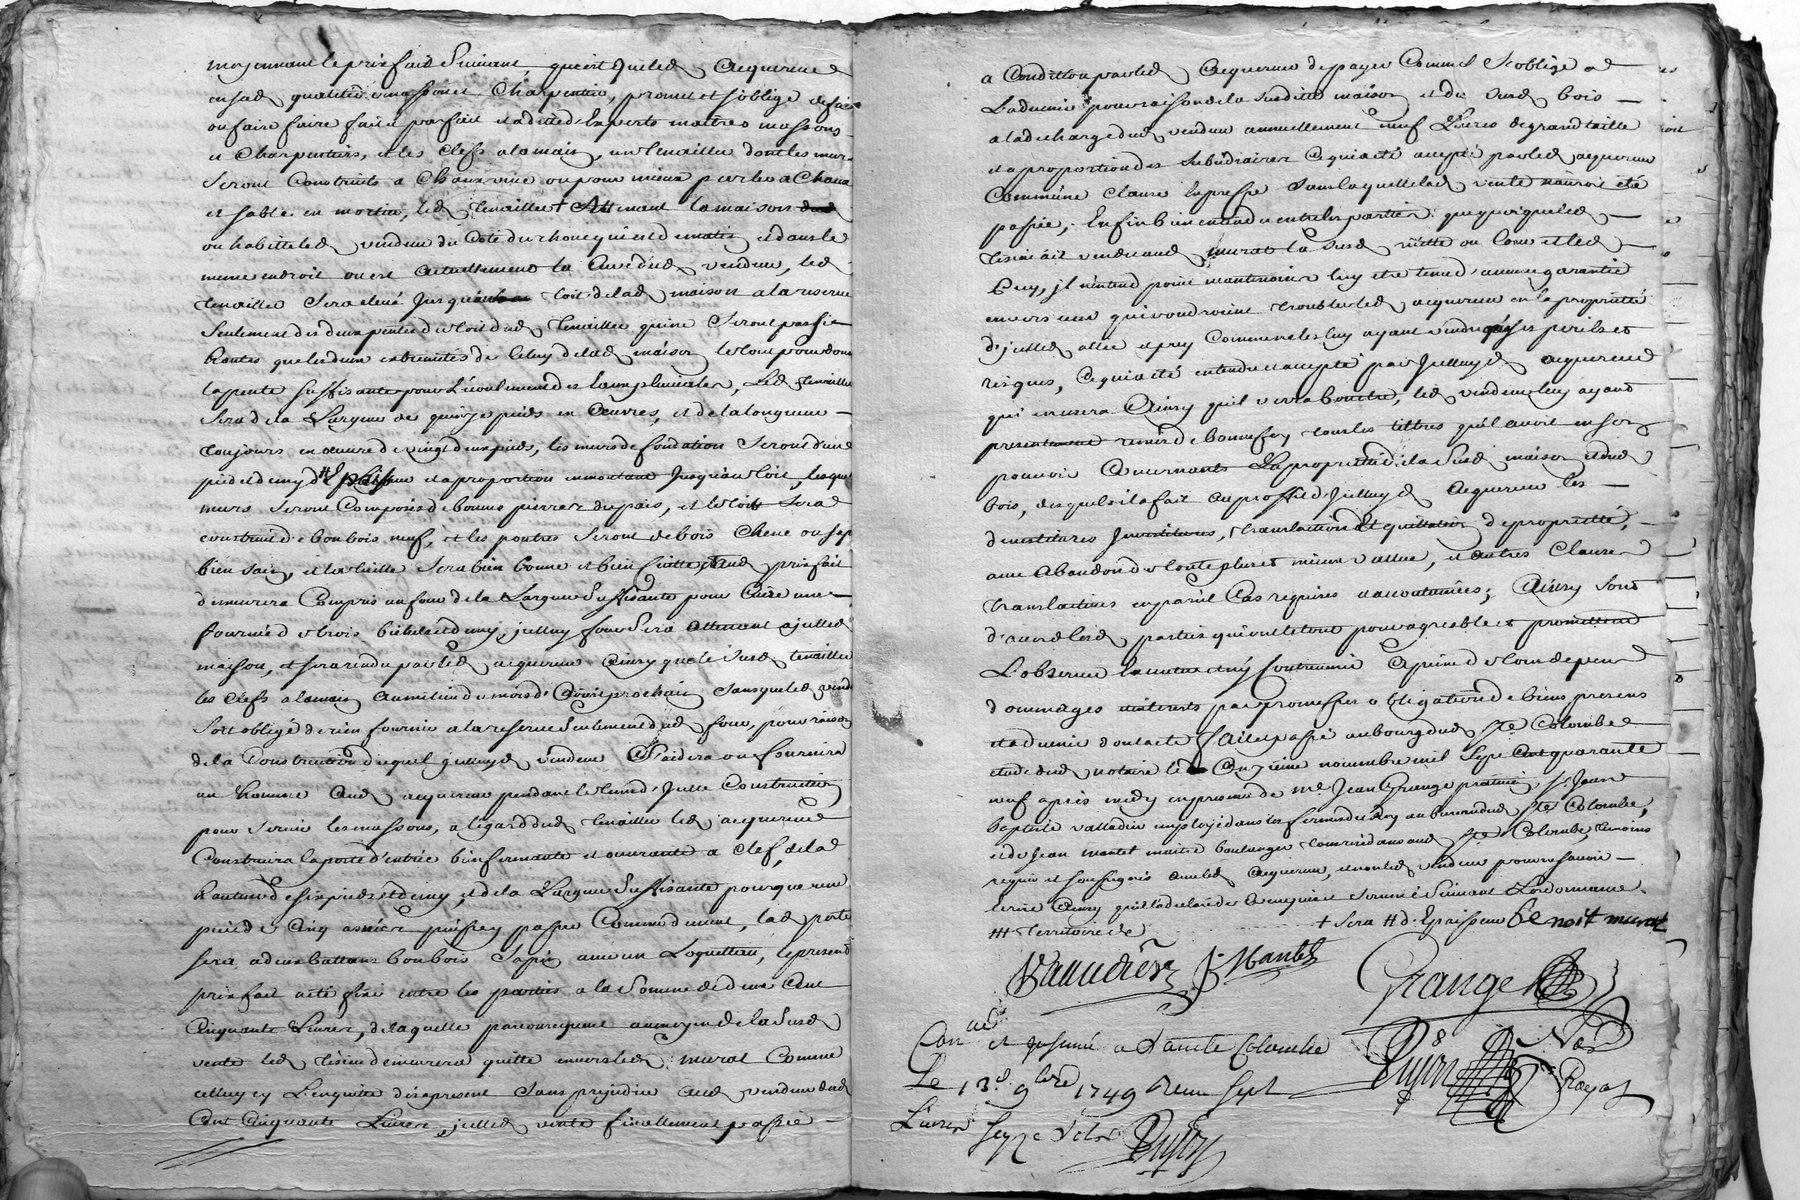 moyennant le prix fait suivant qu'est que led acquereur
en sad qualitté de masson et Charpentier, promet et s'oblige de faire
ou faire faire fait et parfait et a ditte d'Experts maitres massons
et Charpentiers, et les clefs a la main, un tenaillier dont les murs
seront Construits a Chaux vive ou pour mieux parler a Chaux
et sable en mortier, led tenaillier + Attenant la maison
ou habitte led vendeur du Coté du et dans le
meme endroit ou est actuellement la Cave dud vendeur, led
tenaillier sera elevé jusqu'au toit de lad maison a la reserve
seulement des deux pentes du toit dud tenaillier qui ne seront pas si
hautes que les deux extremités de celuy de lad maison le tout pour donner
la pente suffisante pour l'écoulement des Eaux pluviales, Led tenaillier
sera de la Largeur de quinze pieds en Œuvres, et de la longueur
toujours en œuvre de vingt deux pieds, les murs de fondation seront d'un
pied et demy # et a proportion en montant jusqu'au toit, lesquels
murs seront Composés de bonnes pierres du païs, et le toit sera
construit de bon bois neuf, et les poutres seront de bois Chene ou sap
bien sain, et la tuille sera bien bonne et bien cuitte, aud prix fait
demeurera Compris un four de la Largeur suffisante pour Cuire une
fournée de trois bichets et demy, jceluy four sera attenant a jcelled
maison, et sera rendu par led acquereur Ainsy que le susd tenaillier
les clefs a la main au milieu du mois d' prochain sans que led vendeur
soit obligé de rien fournir a la reserve seulement dud four, pour raison
de la Construction duquel jceluyd vendeur Aidera ou fournira
un homme aud acquereur pendant le tems de jcelle Construction
pour servir les massons, a l'égard dud tenaillier led acquereur
Construira la porte d'entrée bien fermante et ouvrante a clef, de la
hauteur de six pieds et demy, et de la Largeur suffisante pour que une
piece de Cinq asnées puisse y passer Commodement, lad porte
sera a deux battans bon bois sapin avec un Loquetteau, le present
prix fait a été fixé entre les parties a la somme de deux Cent
Cinquante Livres, de laquelle par consequent au moyen de la susd
vente led demeurera quitte envers led murat Comme
celluy cy L'en quitte des apresent sans prejudice aud vendeur desd
Cent Cinquante Livres, jcelled vente finallement passée
a Condition par led acquereur de payer Comme il s'oblige a
L'advenir pour raison de la susditte maison et du susd bois
a la décharge dud vendeur annuellement neuf Livres de grand taille
et a proportion des subsidiaires Ce qui a été accepté par led acquereur
Comme une clause Expresse sans laquelle lad vente n'auroit été
passée. Enfin bien entendu entre les parties que quoique led
 ait vendu aud murat la susd ou Cour et led
 jl n'entend point neantmoins luy etre tenu d'aucune garantie
envers ceux qui voudroient troubler led acquereur en la proprietté
d'jcelled allée et puy Comme ne les luy ayant vendu qu'a ses perils et
risques, Ce qui a été entendu et accepté par jcelluyd acquereur
qui en usera Ainsy qu'il verra bon etre, led vendeur luy ayant
presentement remis de bonne foy tous les tittres qu'il avoit en son
pouvoir Concernants La proprietté de la susd maison et dud
bois, desquels il a fait au proffit d'jcelluyd acquereur les
devestitures jnvestitures, translation et quittation de proprietté,
avec abandon de toute plus et mieux vallue, et autres Clauses
translatives en pareil Cas requises et accoutumées; Ainsy sont
d'accord lesd parties qui ont le tout pour agreable et promettent
L'observer A peine de tous depens
dommages interets par promesses obligation de biens presens
et advenir dont acte fait et passé au bourg dud Ste Colombe
etude dud notaire le Onzieme novembre mil sept Cent quarante
neuf après midy en presence de Me Jean Grange praticien, Sr Jean
baptiste valladier employé dans les fermes du Roy au bureau dud Ste Colombe,
et de Jean Mantel maitre boulanger demeurant aud Ste Colombe, témoins
requis et soussignés avec led acquereur, et non led vendeur pour ne savoir
ecrire Ainsy qu'il a declaré de Ce enquis et sommé suivant L'ordonnance.
+ sera # d'Epaisseur benoit murat
### territoire de
J. Mantel
Grange
Con et jnsinué a Sainte Colombe
Le 13e 9bre 1749 Reçu sept
Livres seize sols
Nre
Royal